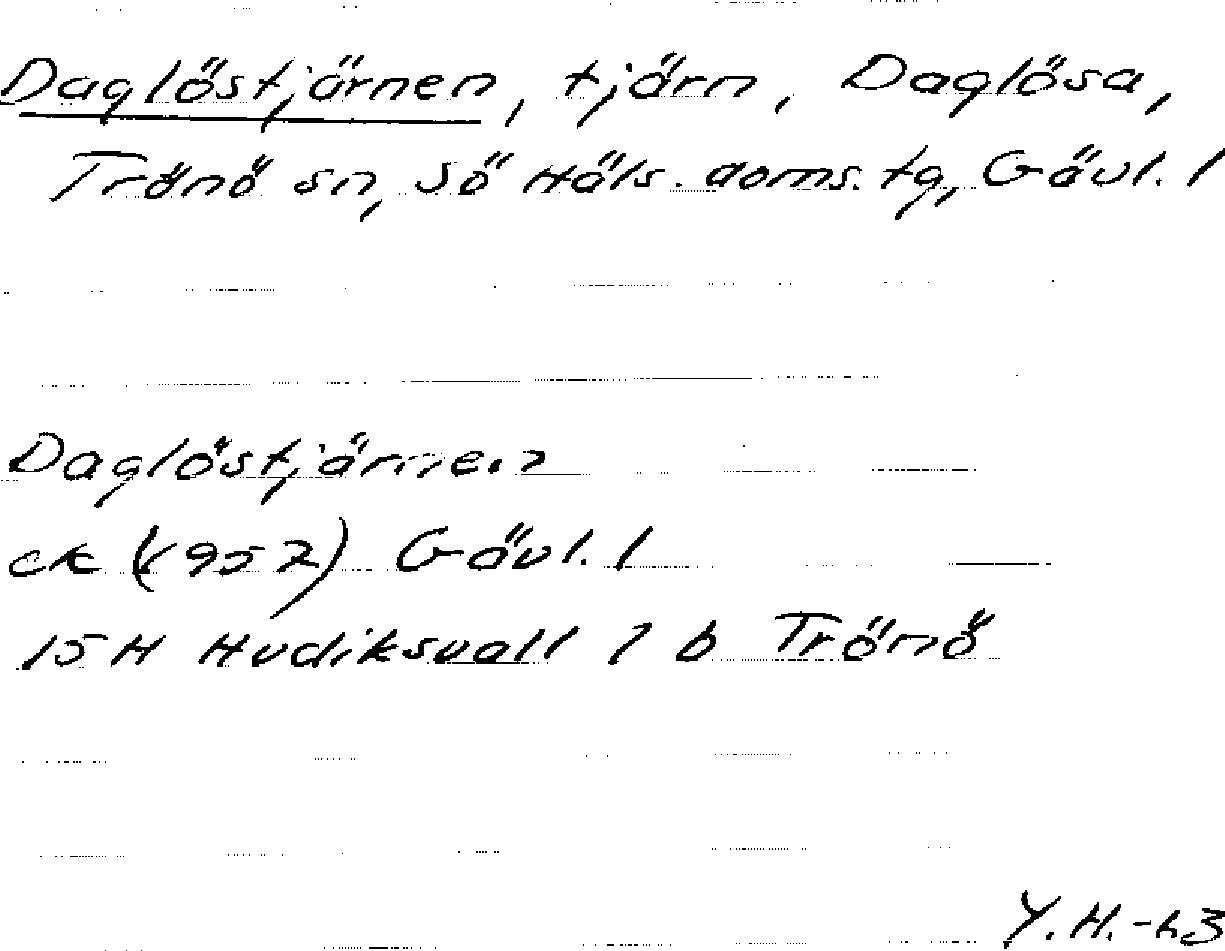 Daglöstjärnen, tjärn, Daglösa,
Trönö sn, Sö Häls. doms. tg, Gävl. l
Daglöstjärnen
ek (1952) Gävl. l
15H Hudiksvall 1 b Trönö
Y.H.-63